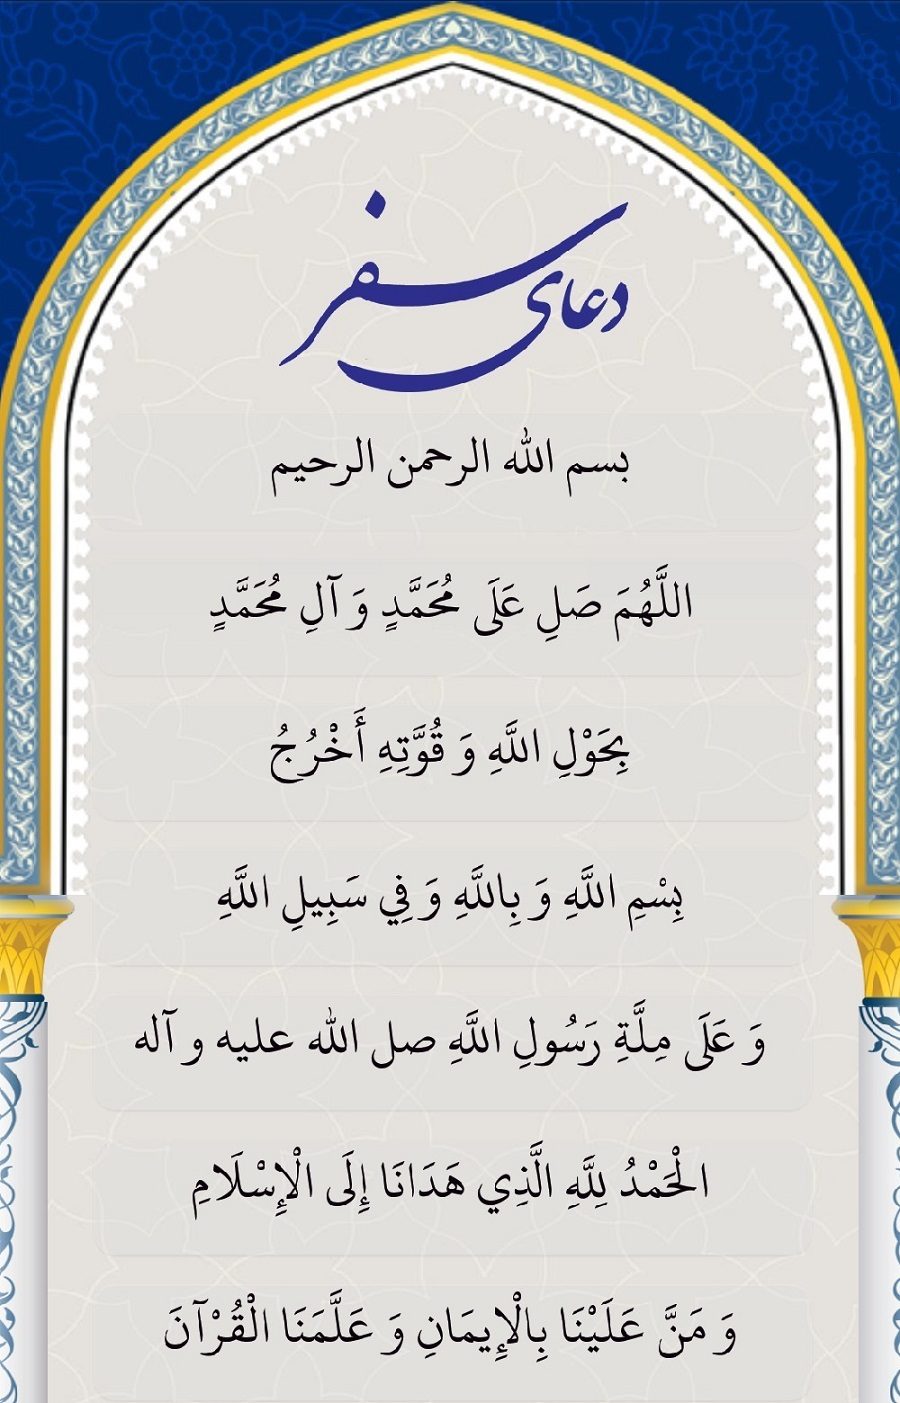 دعای سفر
بسم الله الرحمن الرحيم
اللَّهُمَ صَلِ عَلَى مُحَمَّدٍ وَ آلِ مُحَمَّدٍ
بِحَوْلِ اللَّهِ وَ قُوَّتِهِ أَخْرُجُ
بِسْمِ اللَّهِ وَ بِاللَّهِ وَ فِي سَبِيلِ اللَّهِ
وَ عَلَى مِلَّةِ رَسُولِ اللَّهِ صل الله عليه و آله
الْحَمْدُ لِلَّهِ الَّذِي هَدَانَا إِلَى الْإِسْلَامِ
وَ مَنَّ عَلَيْنَا بِالْإِيمَانِ وَ عَلَّمَنَا الْقُرْآنَ